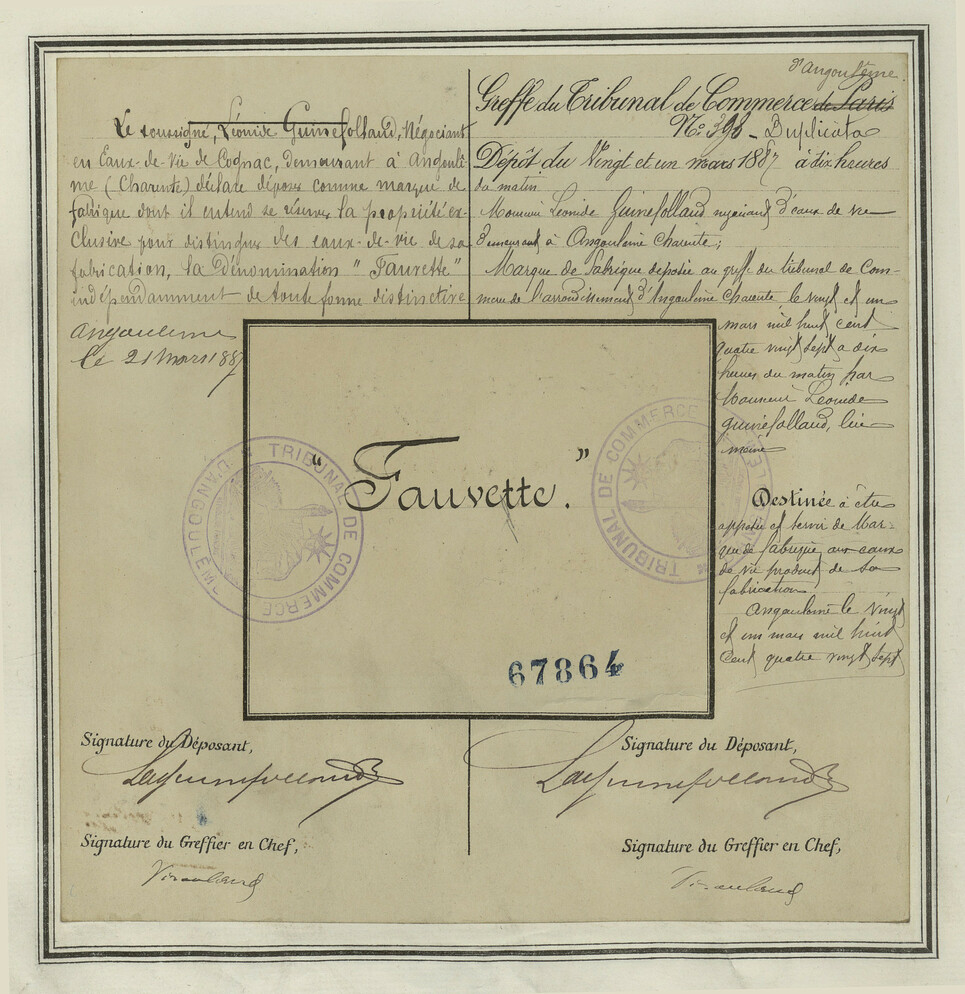 Le soussigné, Léonide Guinefolland, Négociant
en Eaux-de-Vie de Cognac, demeurant à Angoulê-
me (Charente) déclare déposer comme marque de
fabrique dont il entend se réserver la propriété ex-
clusive pour distinguer des eaux-de-vie de sa
fabrication, la Dénomination "Fauvette"
indépendamment de toute forme distinctive
Angoulême
le 21 Mars 1887
d'Angoulême
Greffe du Tribunal de Commerce de Paris
N° 398 - Duplicata
Dépôt du Vingt et un mars 1887 à dix heures
du matin
Monsieur Léonide Guinefolland négociant d'eaux de vie
demeurant à Angoulême Charente;
Marque de fabrique déposée au greffe du tribunal de Com-
merce de l'arrondissement d'Angoulême Charente le vingt et un
mars mil huit cent
quatre vingt sept à dix
heures du matin par
Monsieur Léonide
Guinefolland, lui
même
Destinée à être
apposée et servir de Mar-
que de fabrique aux eaux
de vie produit de sa
fabrication
Angoulême le vingt
et un mars mil huit
cent quatre vingt sept
"Fauvette."
TRIBUNAL DE COMMERCE D'ANGOULÊME
TRIBUNAL DE COMMERCE D'ANGOULÊME
67864
Signature du Déposant,
Signature du Déposant,
Signature du Greffier en Chef,
Signature du Greffier en Chef,